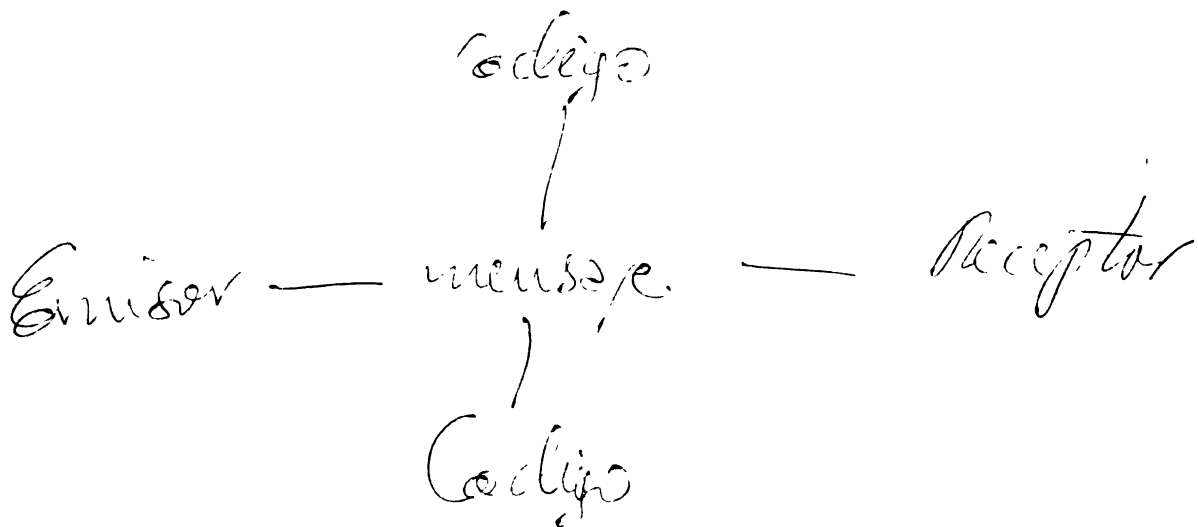 codigo
Emisor — mensaje — Receptor
Codigo